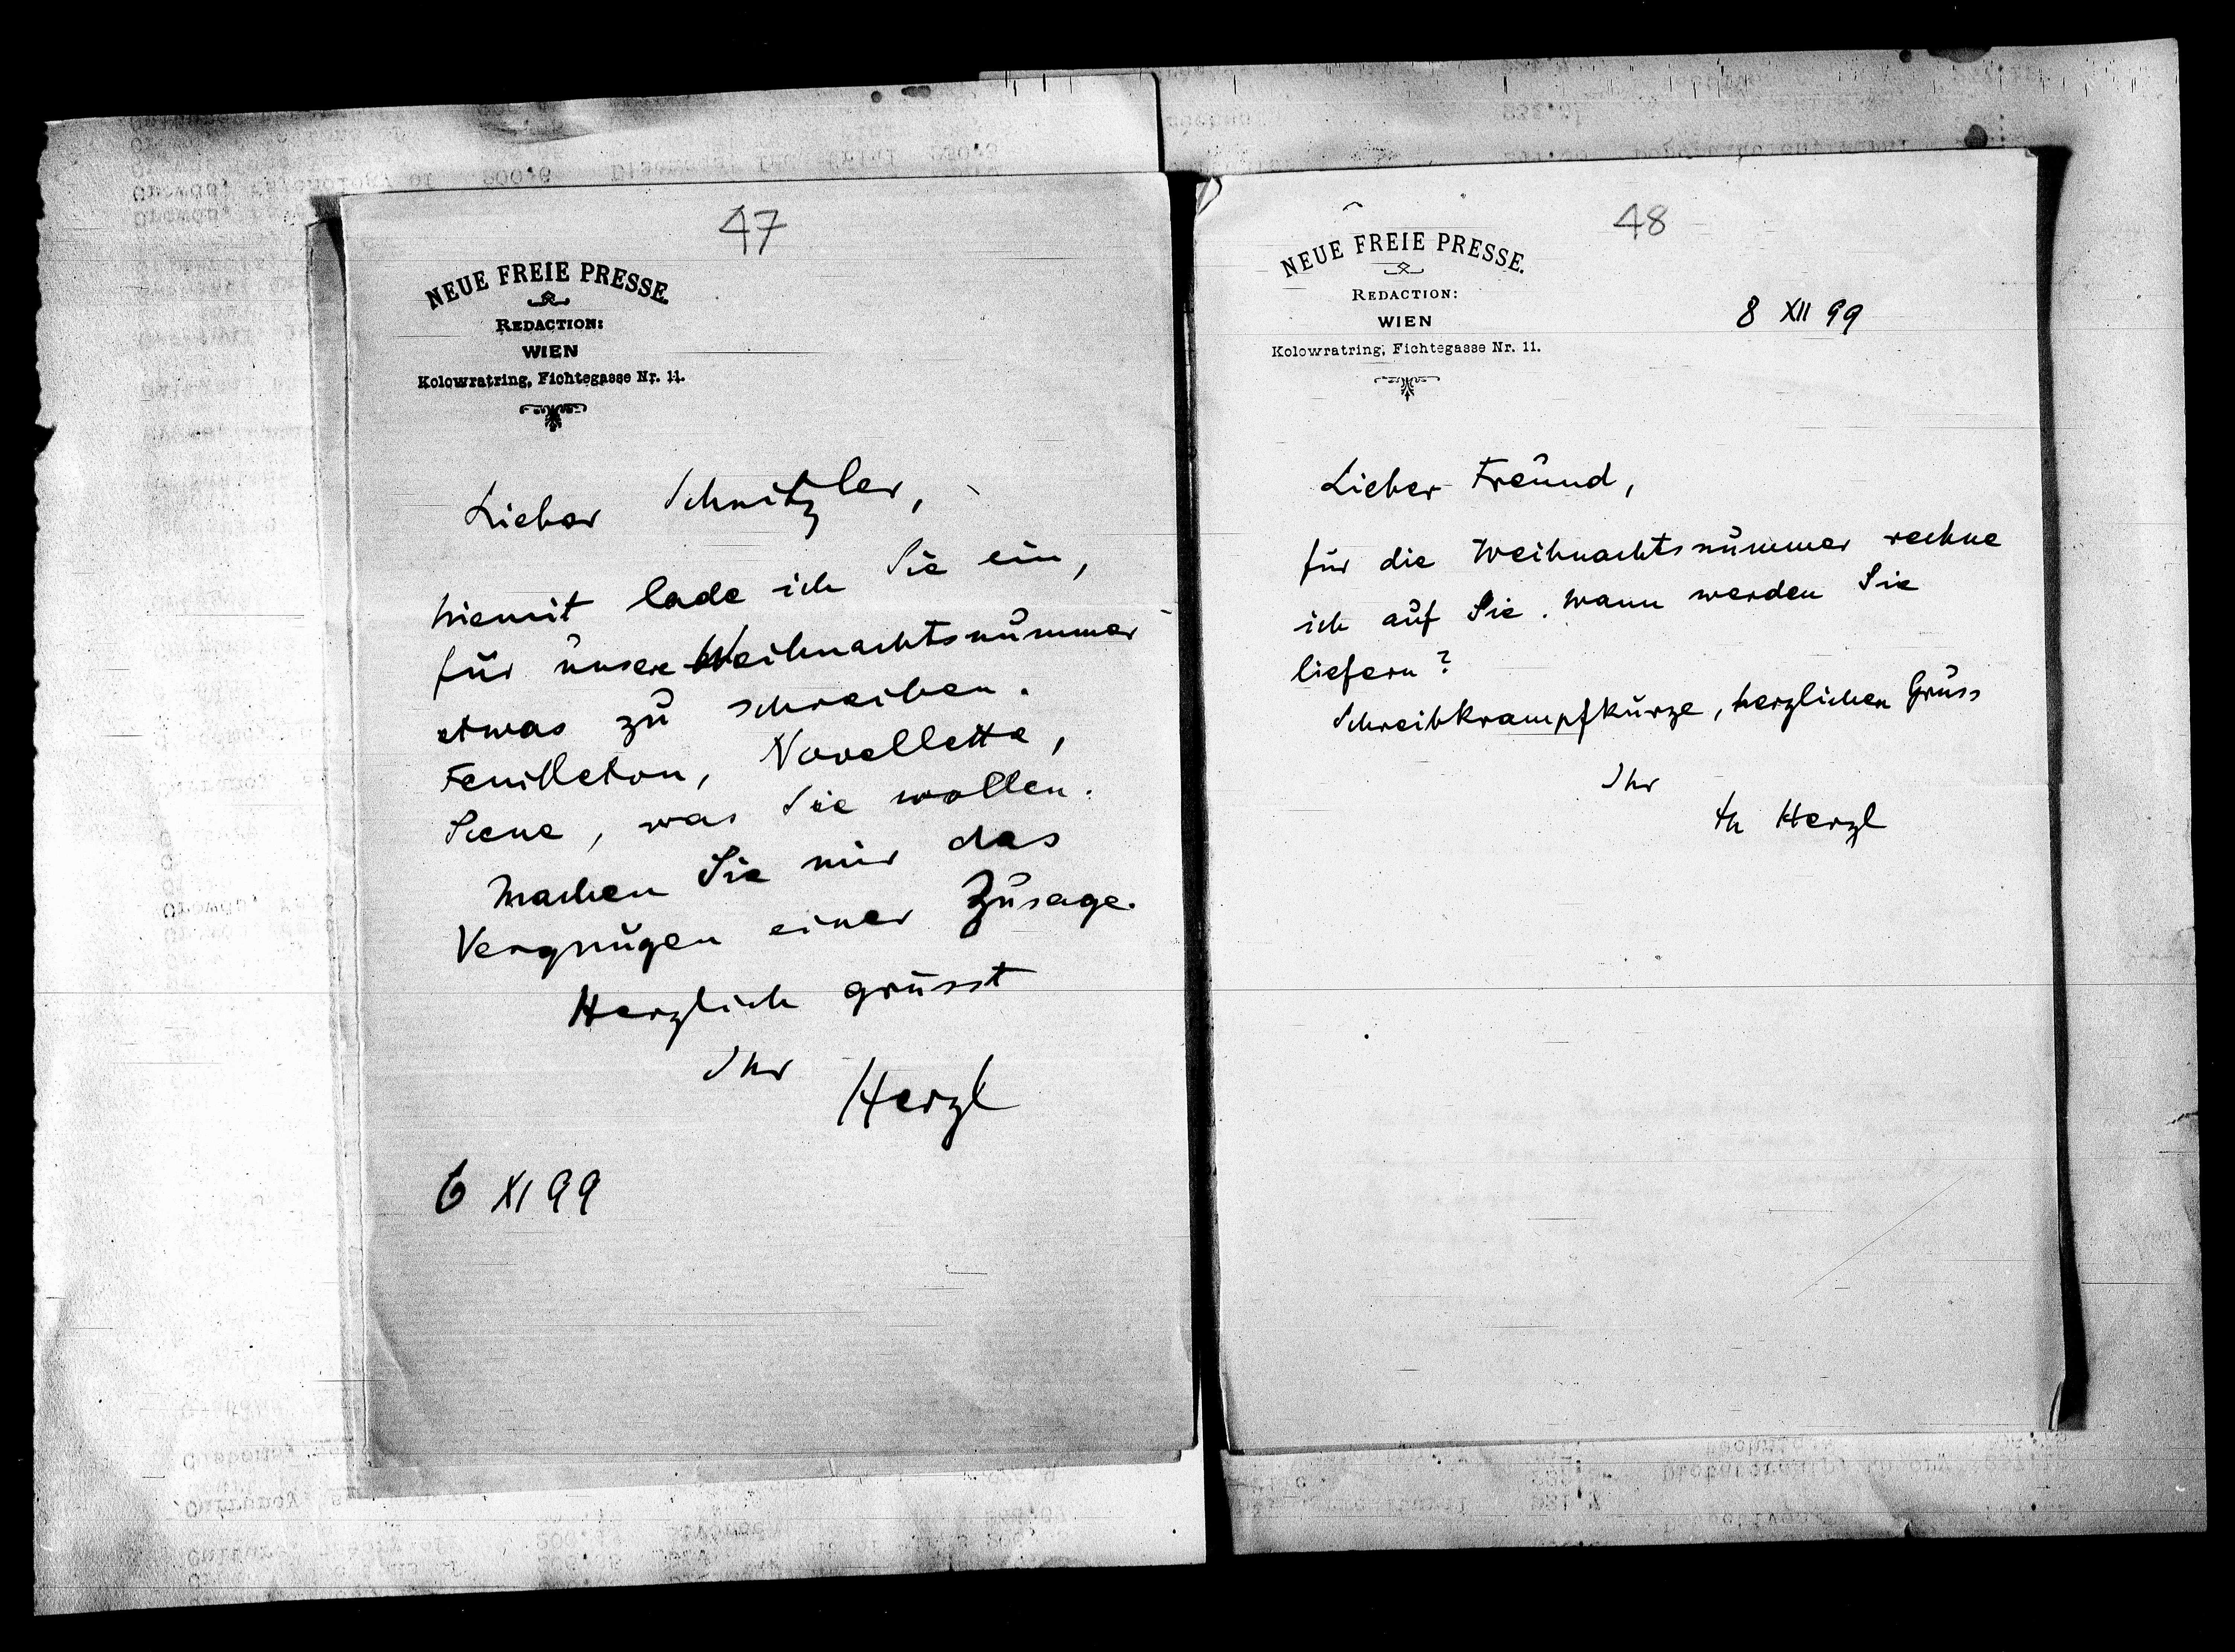 47
NEUE FREIE PRESSE.
REDACTION:
WIEN
Kolowratring, Fichtegasse Nr. 11.
Lieber Schnitzler,
hiemit lade ich Sie ein,
für unsere Weihnachtsnummer
etwas zu schreiben.
Feuilleton, Novellette,
Scene, was Sie wollen.
Machen Sie mir das
Vergnügen einer Zusage.
Herzlich grüsst
Ihr
Herzl
6 XI 99
48
NEUE FREIE PRESSE.
REDACTION:
WIEN
Kolowratring, Fichtegasse Nr. 11.
8 XII 99
Lieber Freund,
für die Weihnachtsnummer rechne
ich auf Sie. Wann werden Sie
liefern?
Schreibkrampfkurze, herzlichen Gruss
Ihr
Th Herzl